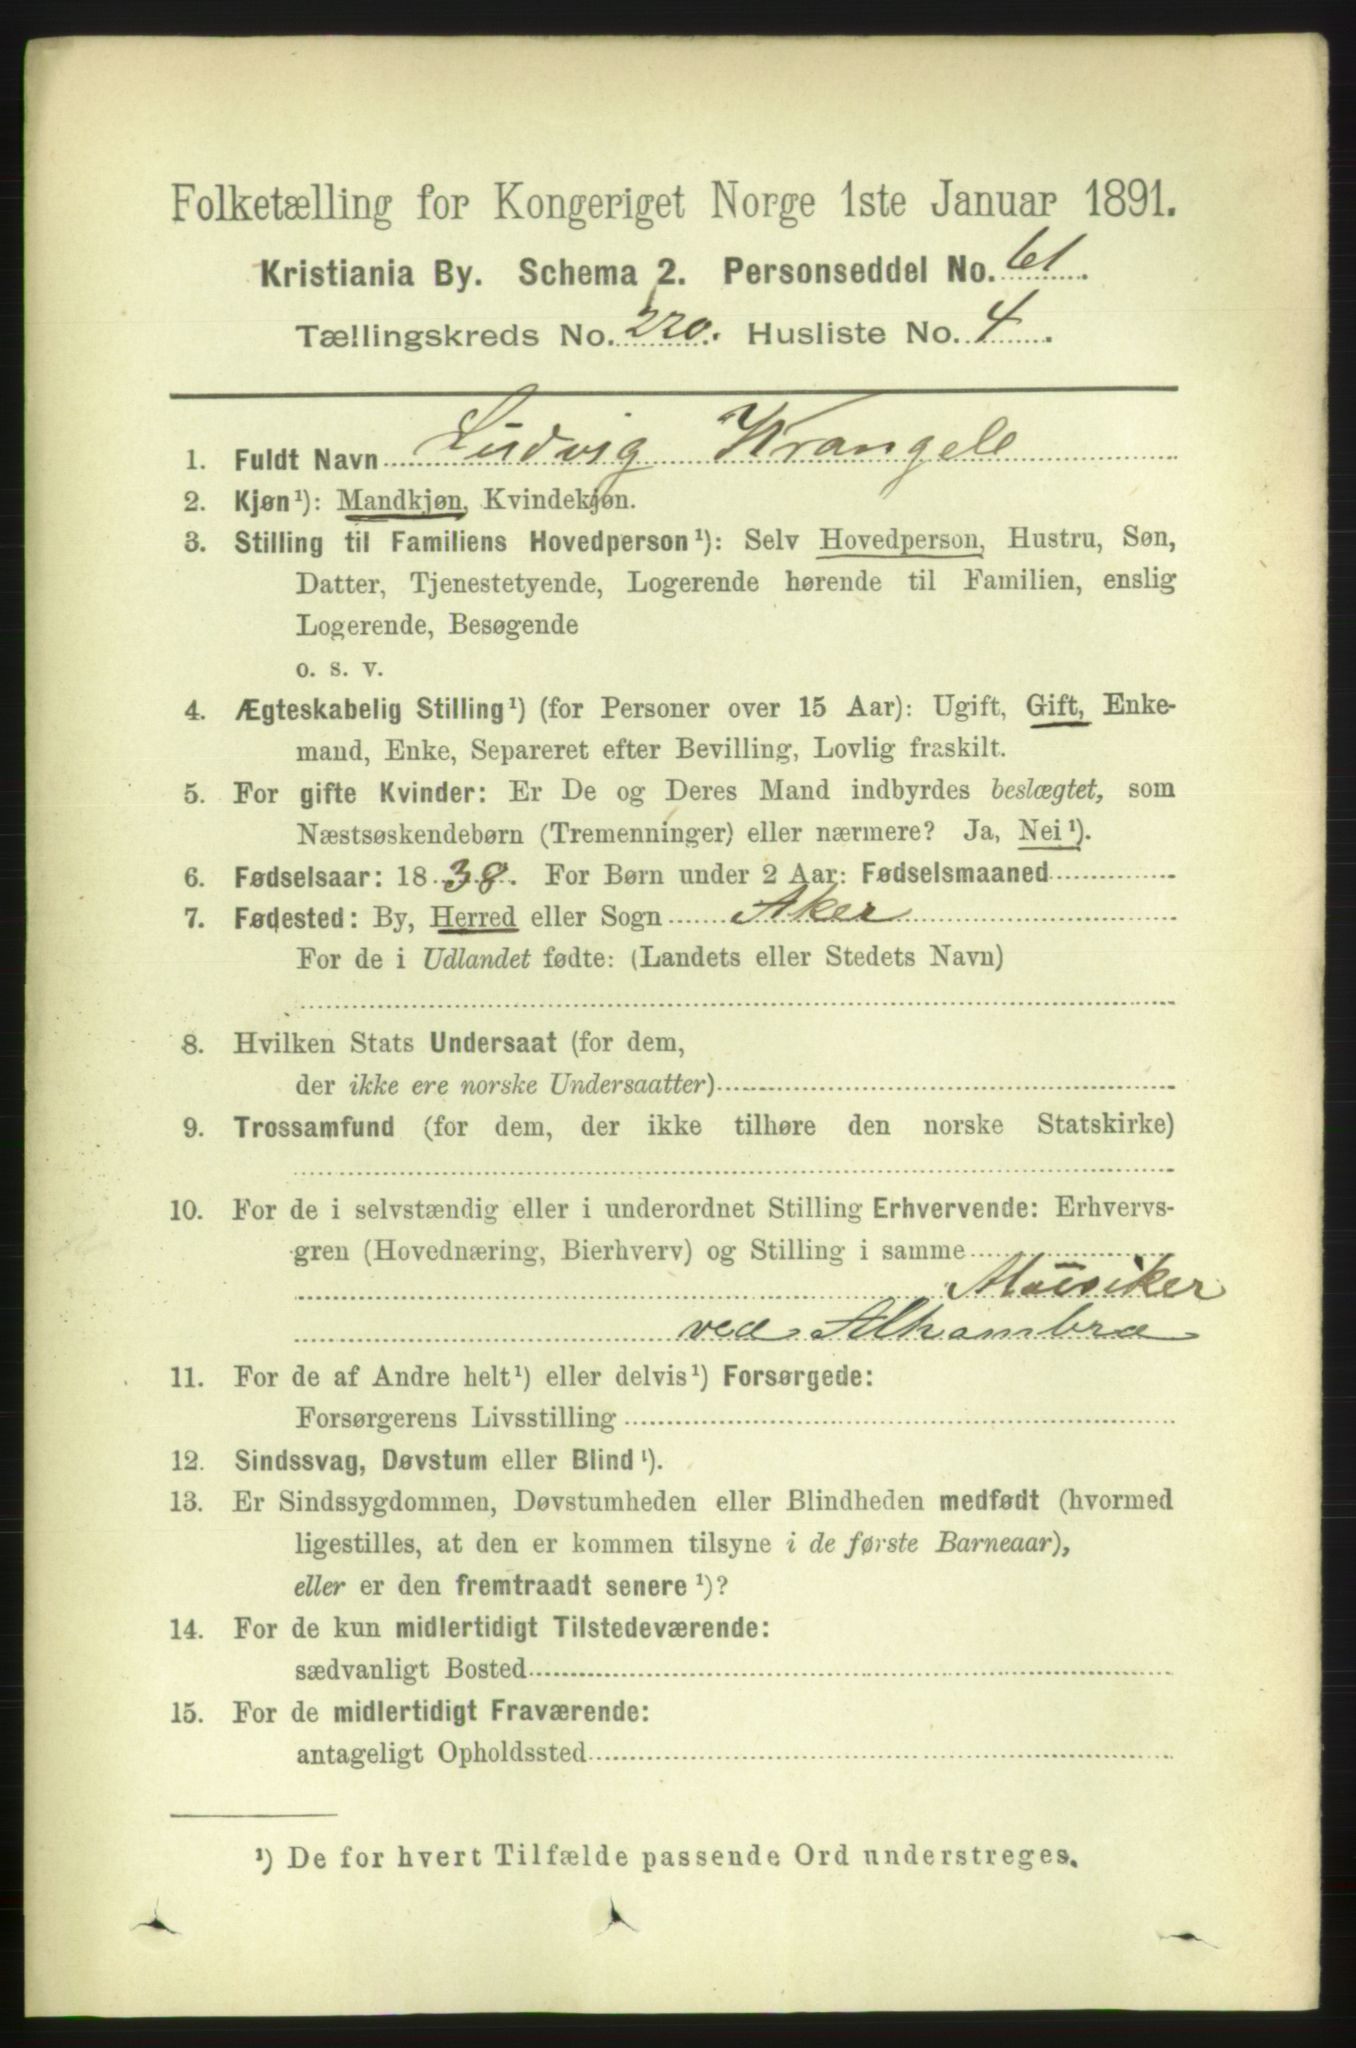 Folketælling for Kongeriget Norge 1ste Januar 1891.
Kristiania By. Schema 2. Personseddel No. 61.
Tællingskreds No. 220. Husliste No. 4.
1. Fuldt Navn Ludvig Krangele
2. Kjøn¹): Mandkjøn, Kvindekjøn.
3. Stilling til Familiens Hovedperson¹): Selv Hovedperson, Hustru, Søn,
Datter, Tjenestetyende, Logerende hørende til Familien, enslig
Logerende, Besøgende
o. s. v.
4. Ægteskabelig Stilling¹) (for Personer over 15 Aar): Ugift, Gift, Enke-
mand, Enke, Separeret efter Bevilling, Lovlig fraskilt.
5. For gifte Kvinder: Er De og Deres Mand indbyrdes beslægtet, som
Næstsøskendebørn (Tremenninger) eller nærmere? Ja, Nei¹).
6. Fødselsaar: 1838. For Børn under 2 Aar: Fødselsmaaned
7. Fødested: By, Herred eller Sogn Aker
For de i Udlandet fødte: (Landets eller Stedets Navn)
8. Hvilken Stats Undersaat (for dem,
der ikke ere norske Undersaatter)
9. Trossamfund (for dem, der ikke tilhøre den norske Statskirke)
10. For de i selvstændig eller i underordnet Stilling Erhvervende: Erhvervs-
gren (Hovednæring, Bierhverv) og Stilling i samme
Musiker
ved Alhambra
11. For de af Andre helt¹) eller delvis¹) Forsørgede:
Forsørgerens Livsstilling
12. Sindssvag, Døvstum eller Blind¹).
13. Er Sindssygdommen, Døvstumheden eller Blindheden medfødt (hvormed
ligestilles, at den er kommen tilsyne i de første Barneaar),
eller er den fremtraadt senere¹)?
14. For de kun midlertidigt Tilstedeværende:
sædvanligt Bosted
15. For de midlertidigt Fraværende:
antageligt Opholdssted
¹) De for hvert Tilfælde passende Ord understreges.